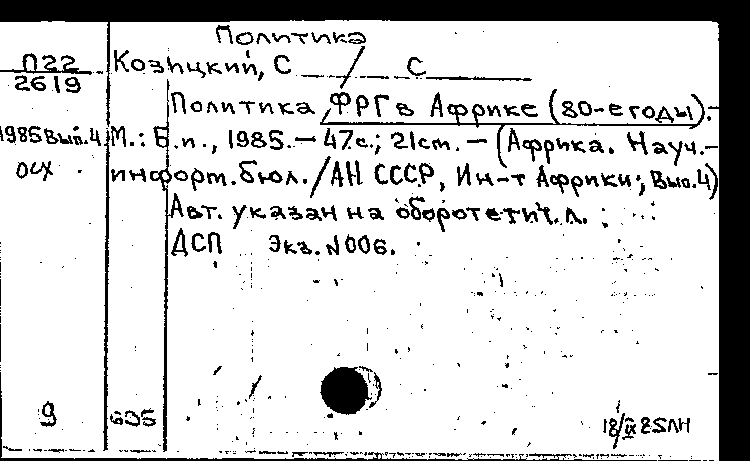 Политика
П22 Козицкий, С С
2619
Политика ФРГ в Африке (80-е годы).-
1985 Вып.4 М.: Б.и., 1985.— 47с.; 21cm. — (Африка. Науч.-
осх информ. бюл./АН СССР, Ин-т Африки; Вып.4)
Авт. указан на обороте тит. л.
ДСП Экз. №006.
9 695